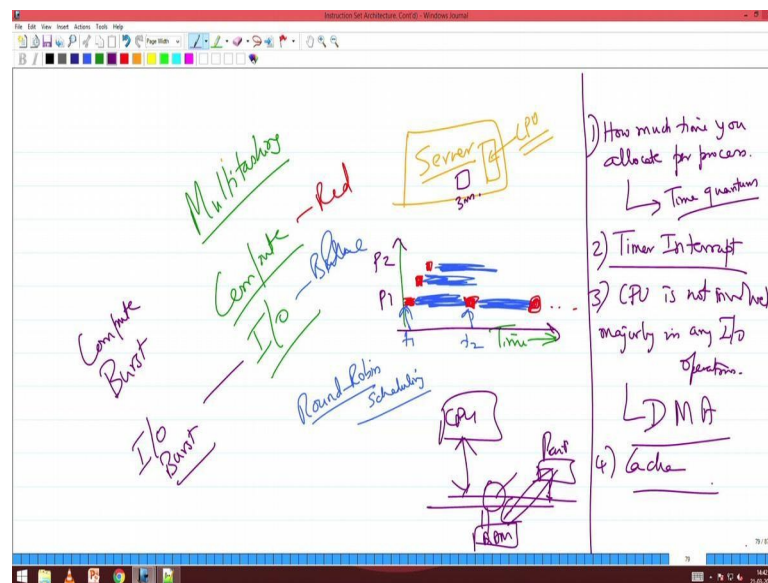 Instruction Set Architecture. Cont'd] - Windows Journal
File Edit View Insert Actions Tools Help
Page Width
B I
Multitasking
Compute - Red
I/O - Blue
Compute
Burst
I/O
Burst
Server
CPU
3m.
P2
P1
t1 t2 Time
...
Round-Robin
Scheduling
CPU
RAM
1) How much time you
allocate per process.
Time quantum
2) Timer Interrupt
3) CPU is not involved
majorly in any I/O
operations.
DMA
4) Cache
79
14:42